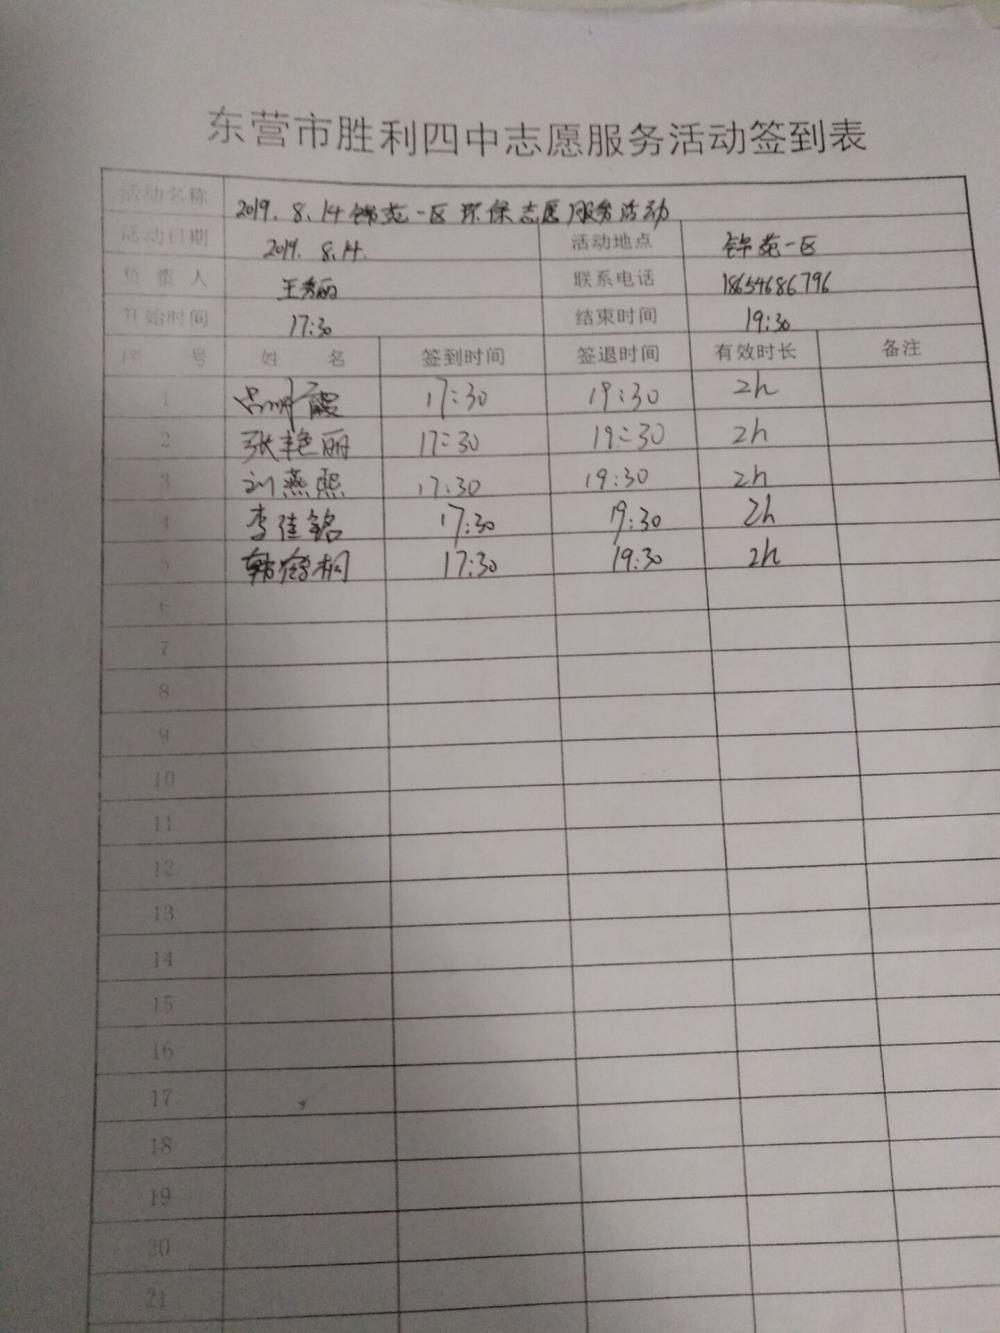 东营市胜利四中志愿服务活动签到表
活动名称 2019.8.14锦苑一区环保志愿服务活动
活动日期 2019.8.14. 活动地点 锦苑一区
负责人 王秀丽 联系电话 18654686796
开始时间 17:30 结束时间 19:30
序号 姓名 签到时间 签退时间 有效时长 备注
1 17:30 19:30 2h
2 张艳丽 17:30 19:30 2h
3 刘燕熙 17:30 19:30 2h
4 李佳铭 17:30 19:30 2h
5 韩鹤桐 17:30 19:30 2h
6
7
8
9
10
11
12
13
14
15
16
17
18
19
20
21